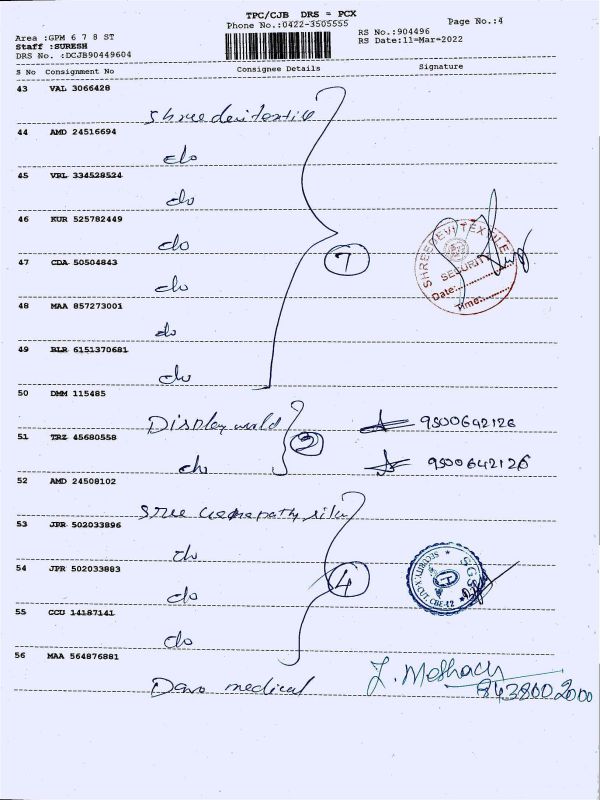 TPC/CJB DRS = PCX
Phone No.:0422-3505555
Page No.:4
Area :GPM 6 7 8 ST
RS No.:904496
Staff :SURESH
RS Date:11=Mar=2022
DRS No. :DCJB90449604
S No Consignment No Consignee Details Signature
43 VAL 3066428
Shreedevi textile
44 AMD 24516694
do
45 VRL 334528524
do
46 KUR 525782449
do
7
SHREEDEVI TEXTILE
SECURITY
Date:
Time:
47 CDA 50504843
do
48 MAA 857273001
do
49 BLR 6151370681
do
50 DMM 115485
Display world
9500642126
51 TRZ 45680558
2
do
9500642126
52 AMD 24508102
Sree
53 JPR 502033896
do
54 JPR 502033883
4
do
55 CCU 14187141
do
56 MAA 564876881
medical
J. Moshach
8438002000